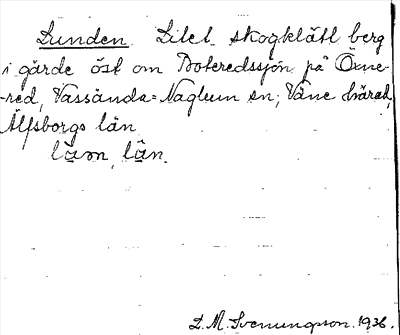 Lunden. Litet skogklätt berg
i gärde öst om Boteredssjön på Öxne-
-red, Vassända=Naglum sn; Väne härad,
Älfsborgs län
län.
D. M. Svenungson. 1936.